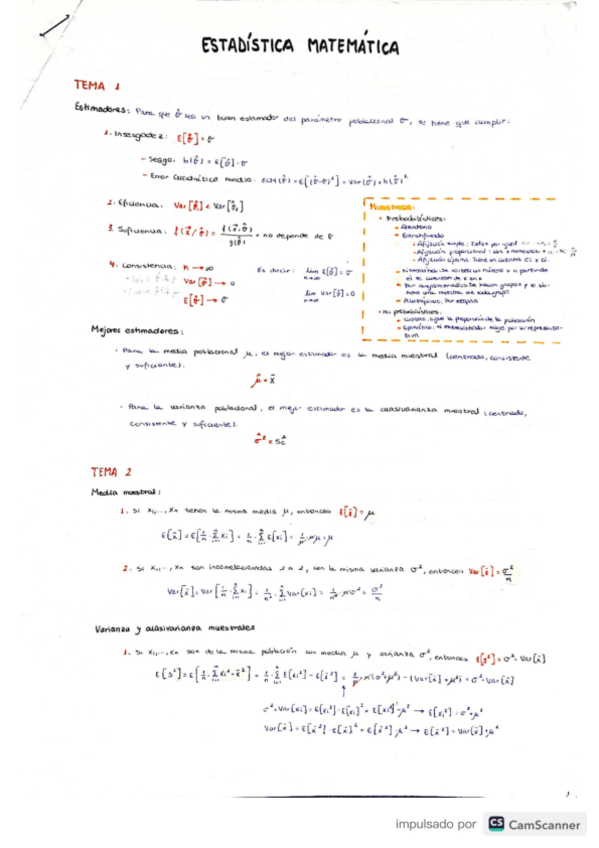 ESTADÍSTICA MATEMÁTICA
TEMA 1
Estimadores: Para que θ̂ sea un buen estimador del parámetro poblacional θ, se tiene que cumplir:
1. Insesgadez: E[θ̂] = θ
- Sesgo: b(θ̂) = E[θ̂] - θ
- Error cuadrático medio: ECM(θ̂) = E[(θ̂-θ)²] = Var(θ̂) + b(θ̂)²
2. Eficiencia: Var[θ̂₁] < Var[θ̂₂]
3. Suficiencia: f(x̄/θ̂) = f(x̄,θ̂)/g(θ̂) → no depende de θ
4. Consistencia: n → ∞
Var[θ̂] → 0
E[θ̂] → θ
Es decir: lim E[θ̂] = θ
n→∞
lim Var[θ̂] = 0
n→∞
Muestreos:
• Probabilísticos:
- Aleatorio
- Estratificado
Afijación simple: Todos por igual
Afijación proporcional
Afijación óptima: Tiene en cuenta
- Sistemático: se sortea un número y a partir de él se cuentan de k en k
- Por conglomerados: Se hacen grupos y se obtiene una muestra de cada grupo
- Polietápicos: Por etapas
• No probabilísticos:
- Cuotas: sigue la proporción de la población
- Opinático: el entrevistador elige por su representativa
Mejores estimadores:
· Para la media poblacional μ, el mejor estimador es la media muestral (centrado, consistente
y suficiente).
μ̂ = x̄
· Para la varianza poblacional, el mejor estimador es la cuasivarianza muestral (centrado,
consistente y suficiente).
σ̂² = Sc²
TEMA 2
Media muestral:
1. Si x₁,..., xn tienen la misma media μ, entonces E[x̄] = μ
E[x̄] = E[1/n · Σ xi] = 1/n · Σ E[xi] = 1/n · nμ = μ
2. Si x₁,..., xn son incorrelacionadas 2 a 2, con la misma varianza σ², entonces Var[x̄] = σ²/n
Var[x̄] = Var[1/n · Σ xi] = 1/n² · Σ Var[xi] = 1/n² · nσ² = σ²/n
Varianza y cuasivarianza muestrales
1. Si x₁,..., xn son de la misma población con media μ y varianza σ², entonces E[s²] = σ² - Var[x̄]
E[S²] = E[1/n · Σ xi² - x̄²] = 1/n · Σ E[xi²] - E[x̄²] = 1/n · n(σ²+μ²) - (Var[x̄] + μ²) = σ² - Var[x̄]
σ² = Var[xi] = E[xi²] - E[xi]² = E[xi²] - μ² → E[xi²] = σ² + μ²
Var[x̄] = E[x̄²] - E[x̄]² = E[x̄²] - μ² → E[x̄²] = Var[x̄] + μ²
impulsado por CS CamScanner